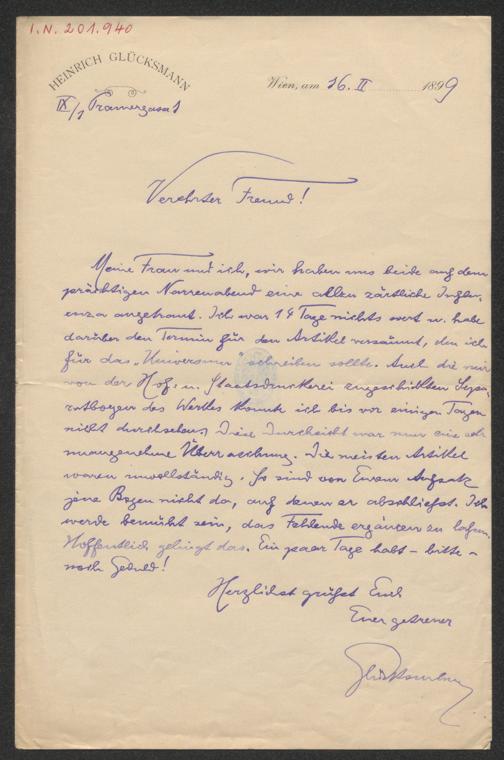 I.N. 201.940
HEINRICH GLÜCKSMANN
Wien, am 16. II 1899
IX/1
Verehrter Freund!
Meine Frau und ich, wir haben uns beide auf dem
prächtigen Narrenabend eine allen zärtliche Influ-
enza angetraut. Ich war 14 Tage nichts wert u. habe
darüber den Termin für den Artikel versäumt, den ich
für das „Universum" schreiben sollte. Auch die mir
von der Hof- u. Staatsdruckerei zugeschickten Sepa-
ratbogen des Werkes konnte ich bis vor einigen Tagen
nicht durchsehen. Diese Durchsicht war nur eine sehr
unangenehme Überraschung. Die meisten Artikel
waren unvollständig. So sind von Eurem Aufsatz
jene Bogen nicht da, auf denen er abschliesst. Ich
werde bemüht sein, das Fehlende ergänzen zu lassen.
Hoffentlich gelingt das. Ein paar Tage habt – bitte –
noch Geduld!
Herzlichst grüsst Euch
Euer getreuer
Glücksmann